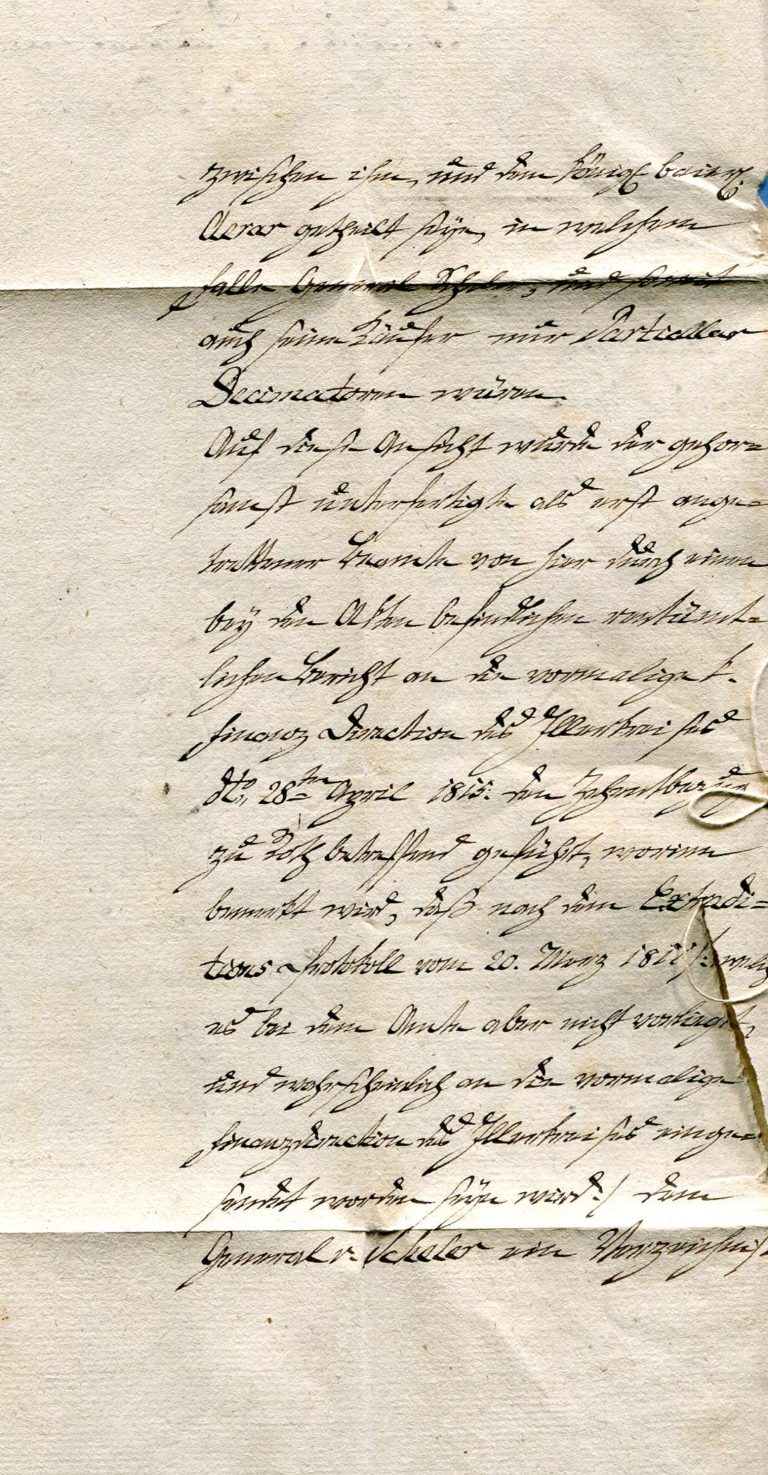 zwischen ihm, und dem königl. baier.
Aerar getheilt seye, in welchem
Falle General Scheler, und somit
auch seine Käufer nur Partiallar
Decimatoren wären.
Auf diese Ansicht wurde der gehor=
samst unterfertigte als erst ange=
trettener Beamte von hier durch einen
bey den Akten befindlichen rentämt=
lichen Bericht an die vormalige k.
Finanz Direction des Illerkreises
dto. 28ten April 1815. den Zehentbezug
zu Roth betreffend geführt, worinn
bemerkt wird, daß nach dem Extradi=
tions Protokoll vom 20. Merz 1811 /: welch
es bei dem Amte aber nicht vorliegt,
und wahrscheinlich an die vormalige
Finanzdirection des Illerkreises einge=
sendet worden seyn wird :/ dem
General v. Scheler ein Verzeichniß